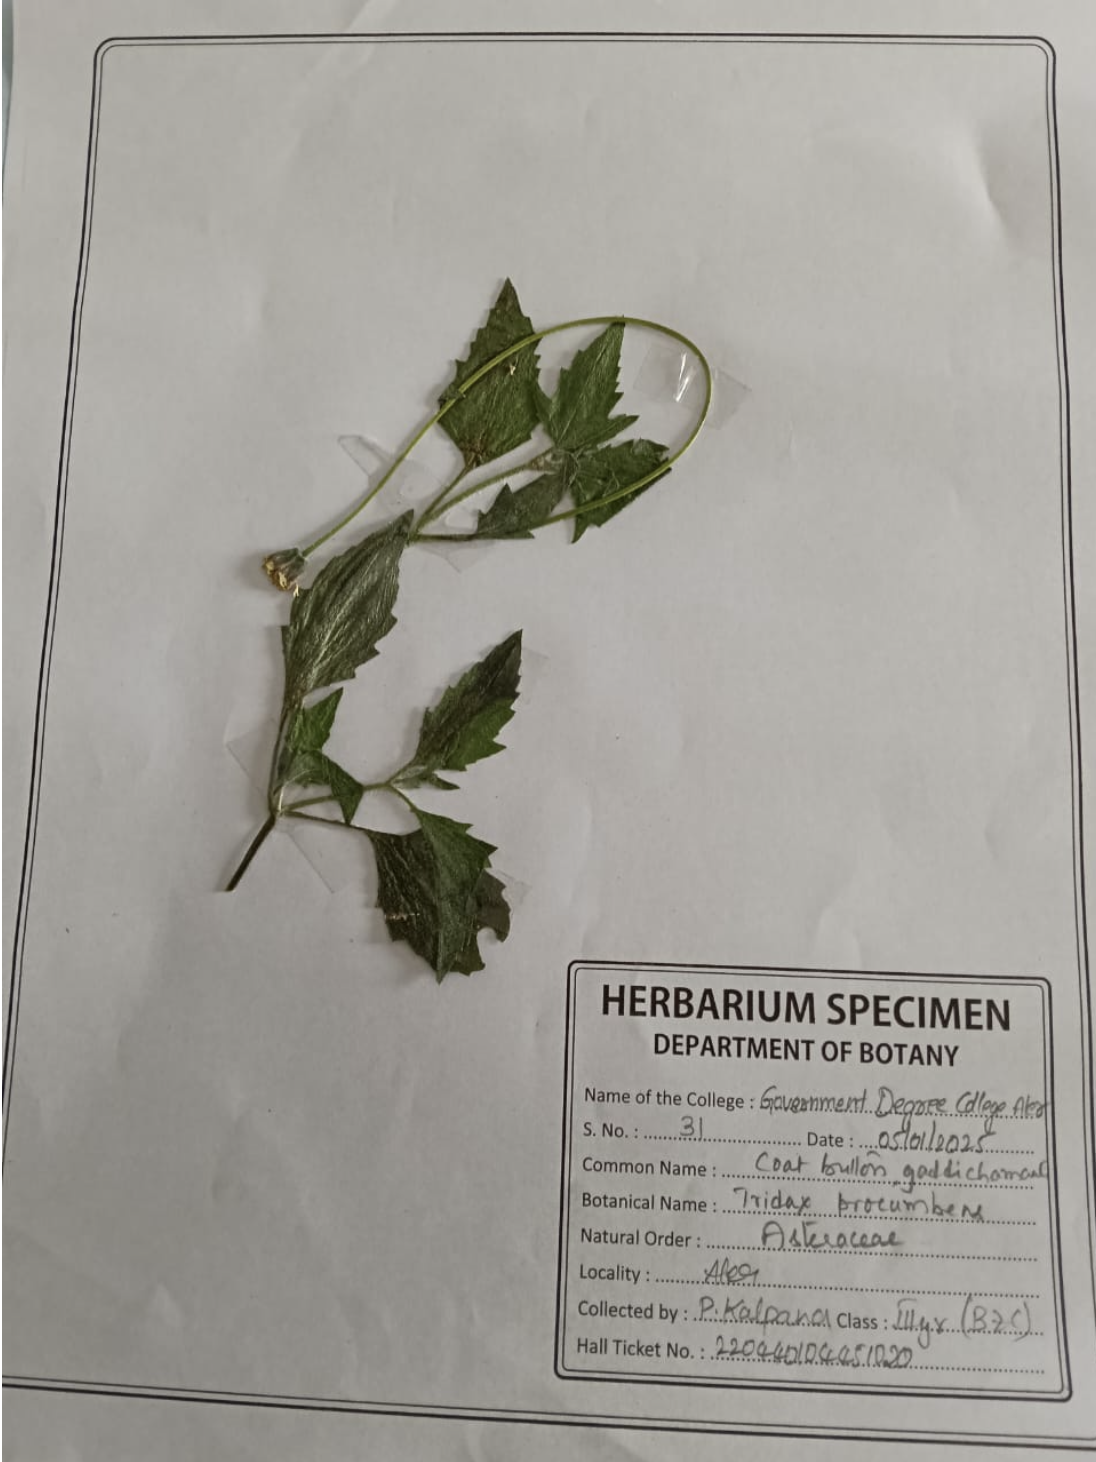 HERBARIUM SPECIMEN
DEPARTMENT OF BOTANY
Name of the College : Government Degree College Aler
S. No. : 31 Date : 05/01/2025
Common Name : Coat bullon gaddichamanti
Botanical Name : Tridax procumbens
Natural Order : Asteraceae
Locality : Aler
Collected by : P. Kalpana Class : III yr (BZC)
Hall Ticket No. :